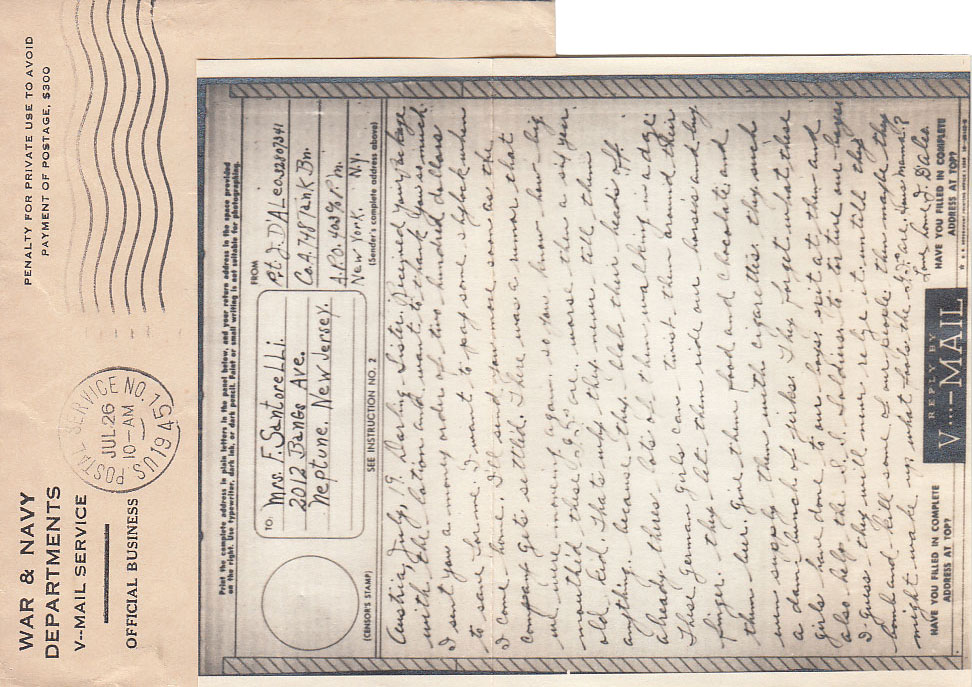 WAR & NAVY
DEPARTMENTS
V--MAIL SERVICE
OFFICIAL BUSINESS
US POSTAL SERVICE NO. 1
JUL 26
10-AM
1945
PENALTY FOR PRIVATE USE TO AVOID
PAYMENT OF POSTAGE, $300
Print the complete address in plain letters in the panel below, and your return address in the space provided
on the right. Use typewriter, dark ink, or dark pencil. Faint or small writing is not suitable for photographing.
TO:
Mrs. F. Santorelli.
2012 Bangs Ave.
Neptune. New Jersey.
FROM
Pvt. J. DALeo 32807341
Co A. 748 Tank Bn.
A.P.O. 403 % P.m.
New York. N.Y.
(CENSOR'S STAMP)
SEE INSTRUCTION NO. 2
(Sender's complete address above)
Austria, July, 19. Darling Sister: Received your package
with the lotion and want to thank you so much.
I sent you a money order of two hundred dollars
to save for me. I want to pay some when
I come home. I'll send you more soon as the
company gets settled. There was a rumor that
we were moving again. so you know how big
mouth'd these G.I.s are. worse then a six year
old kid. thats why they never tell them
anything. because they blab their heads off.
already theres lots of them walking in a daze
These German girls can twist them around their
finger. they let them ride our horses and buy
them beer. Give them food and chocolate and
even supply them with cigarettes. they such
a dame bunch of jerks. They forget what these
girls have done to our boys. spit at them and
also help the S.S. Soldiers to our boys
I guess they will never relize it untill they
bomb and kill some of our people. then maybe they
might wake up. what fools the U.S. have.
love J. DaLeo
HAVE YOU FILLED IN COMPLETE
ADDRESS AT TOP?
REPLY BY
V...-MAIL
HAVE YOU FILLED IN COMPLETE
ADDRESS AT TOP?